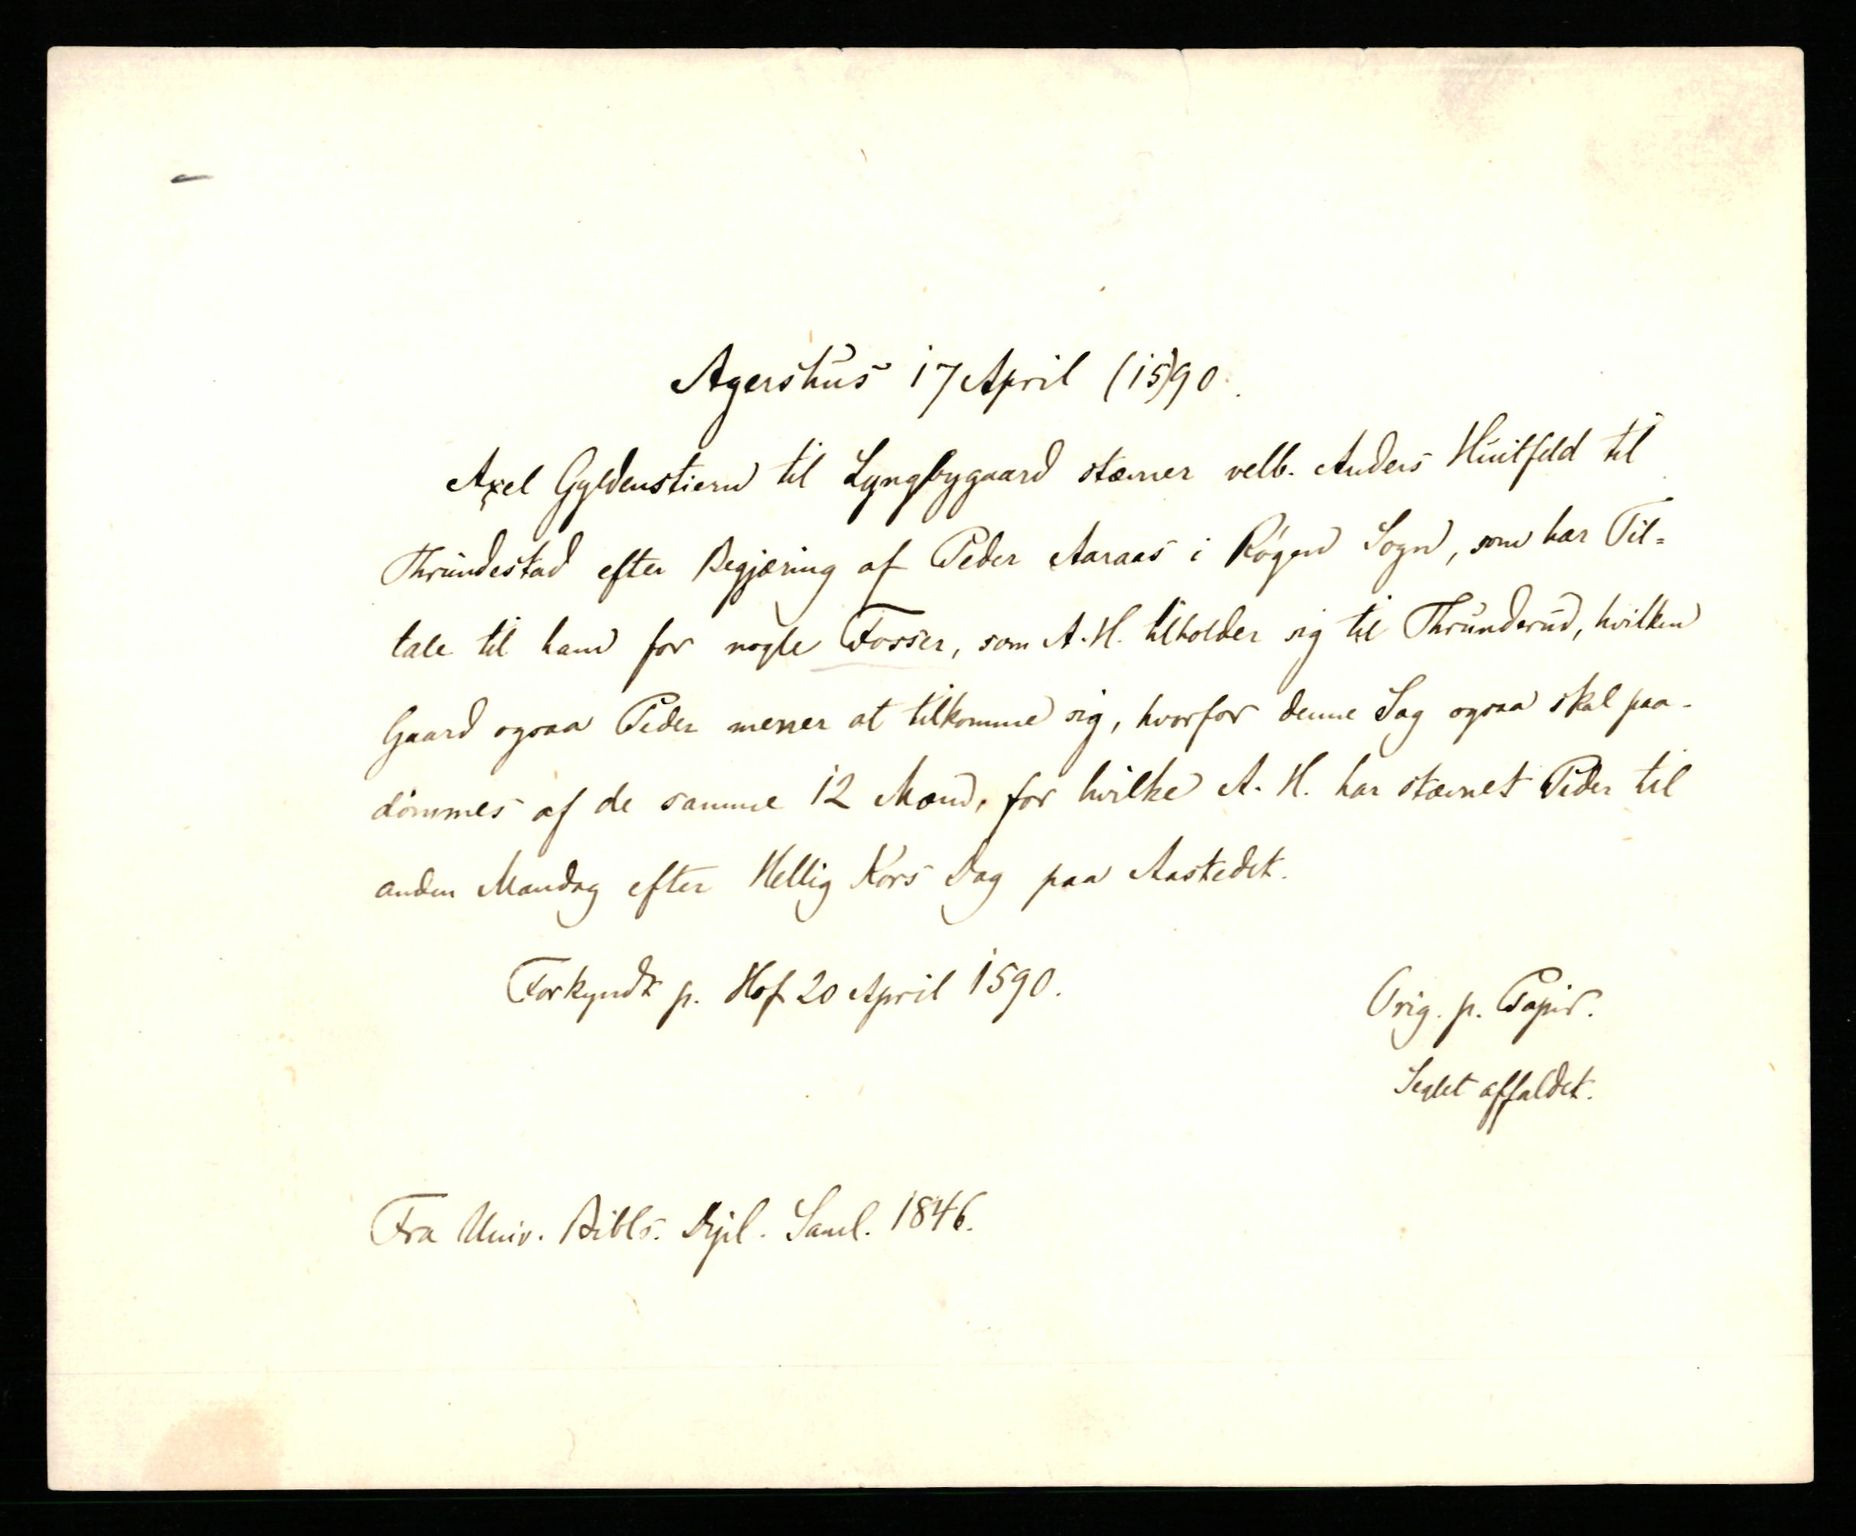 Agershus 17 April (15)90.
Axel Gyldenstiern til Lyngbygaard stævner velb. Anders Huitfeld til
Thrundestad efter Begjæring af Peder Aaraas i Røgen Sogn, som har Til=
tale til ham for nogle Fosser, som A. H. tilholder sig til Thrunderud, hvilken
Gaard ogsaa Peder mener at tilkomme sig, hvorfor denne Sag ogsaa skal paa-
dømmes af de samme 12 Mænd, for hvilke A. H. har stævnet Peder til
anden Mandag efter Hellig Kors Dag paa Aastedet.
Forkyndt p. Hof 20 April 1590.
Orig. p. Papir.
Seglet affaldet.
Fra Univ. Bibls. Dipl. Saml. 1846.